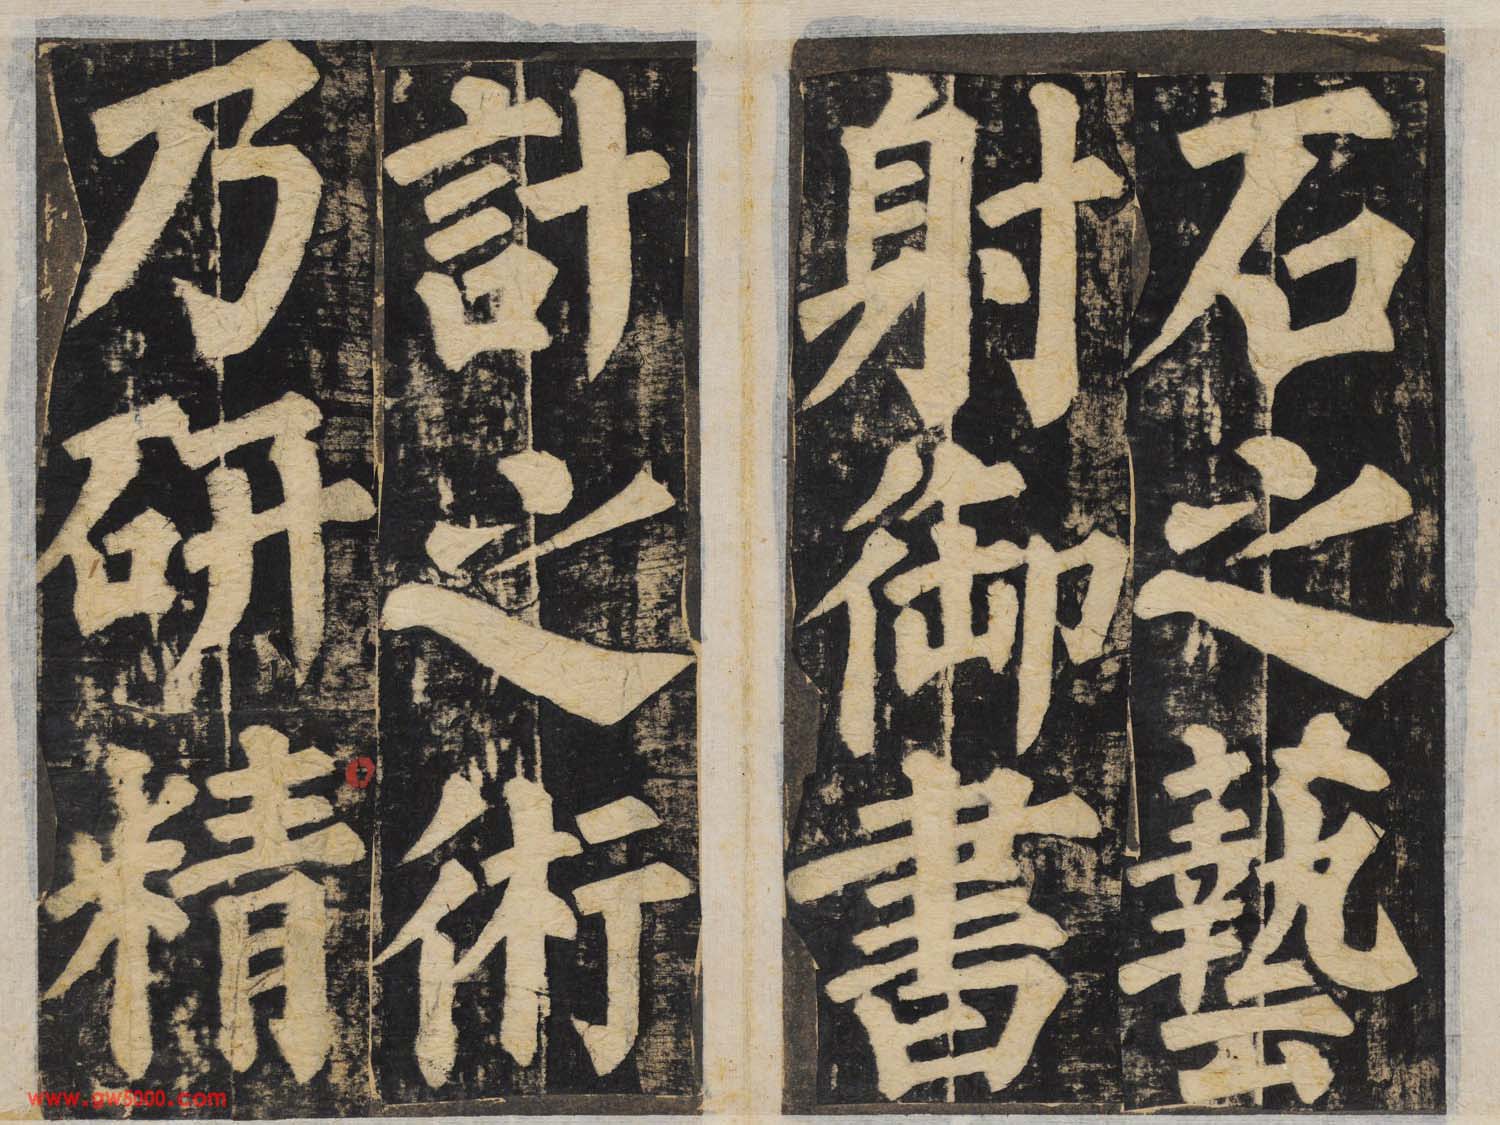 石之藝
射御書
計之術
乃研精
www.gw5000.com